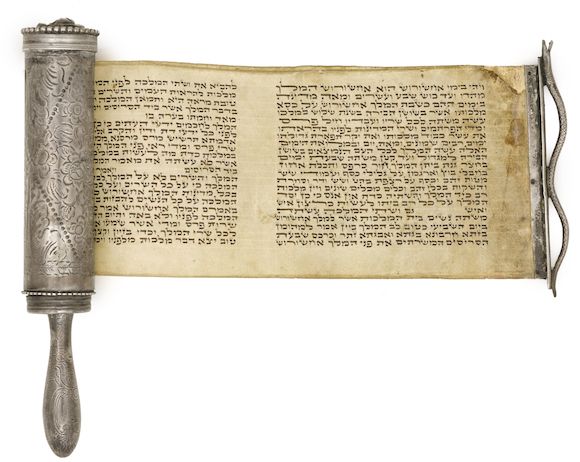 ויהי בימי אחשורוש הוא אחשורוש המלך
מהדו ועד כוש שבע ועשרים ומאה מדינה
בימים ההם כשבת המלך אחשורוש על כסא
מלכותו אשר בשושן הבירה בשנת שלוש למלכו
עשה משתה לכל שריו ועבדיו חיל פרס
ומדי הפרתמים ושרי המדינות לפניו בהראתו
את עשר כבוד מלכותו ואת יקר תפארת גדולתו
ימים רבים שמונים ומאת יום ובמלואת הימים
האלה עשה המלך לכל העם הנמצאים בשושן
הבירה למגדול ועד קטן משתה שבעת ימים
בחצר גנת ביתן המלך חור כרפס ותכלת אחוז
בחבלי בוץ וארגמן על גלילי כסף ועמודי שש
מטות זהב וכסף על רצפת בהט ושש ודר וסחרת
והשקות בכלי זהב וכלים מכלים שונים ויין מלכות
רב כיד המלך והשתיה כדת אין אנס כי כן יסד
המלך על כל רב ביתו לעשות כרצון איש
ואיש גם ושתי המלכה עשתה
משתה נשים בית המלכות אשר למלך אחשורוש
ביום השביעי כטוב לב המלך ביין אמר למהומן
בזתא חרבונא בגתא ואבגתא זתר וכרכס שבעת
הסריסים המשרתים את פני המלך אחשורוש
להביא את ושתי המלכה לפני
מלכות להראות העמים והשרים
טובת מראה היא ותמאן המלכה
בדבר המלך אשר ביד הסריסים
מאד וחמתו בערה בו
המלך לחכמים ידעי העתים כי
לפני כל ידעי דת ודין והקרב
אדמתא תרשיש מרס מרסנא
שרי פרס ומדי ראי פני
במלכות כדת מה לעשות במלכה
אשר לא עשתה את מאמר
הסריסים ויאמר
המלך והשרים לא על המלך
המלכה כי על כל השרים ועל

המלכה על כל הנשים להבזות
באמרם המלך אחשורוש אמר
המלכה לפניו ולא באה והיום
שרות פרס ומדי אשר שמעו
לכל שרי המלך וכדי בזיון
טוב יצא דבר מלכות מלפניו